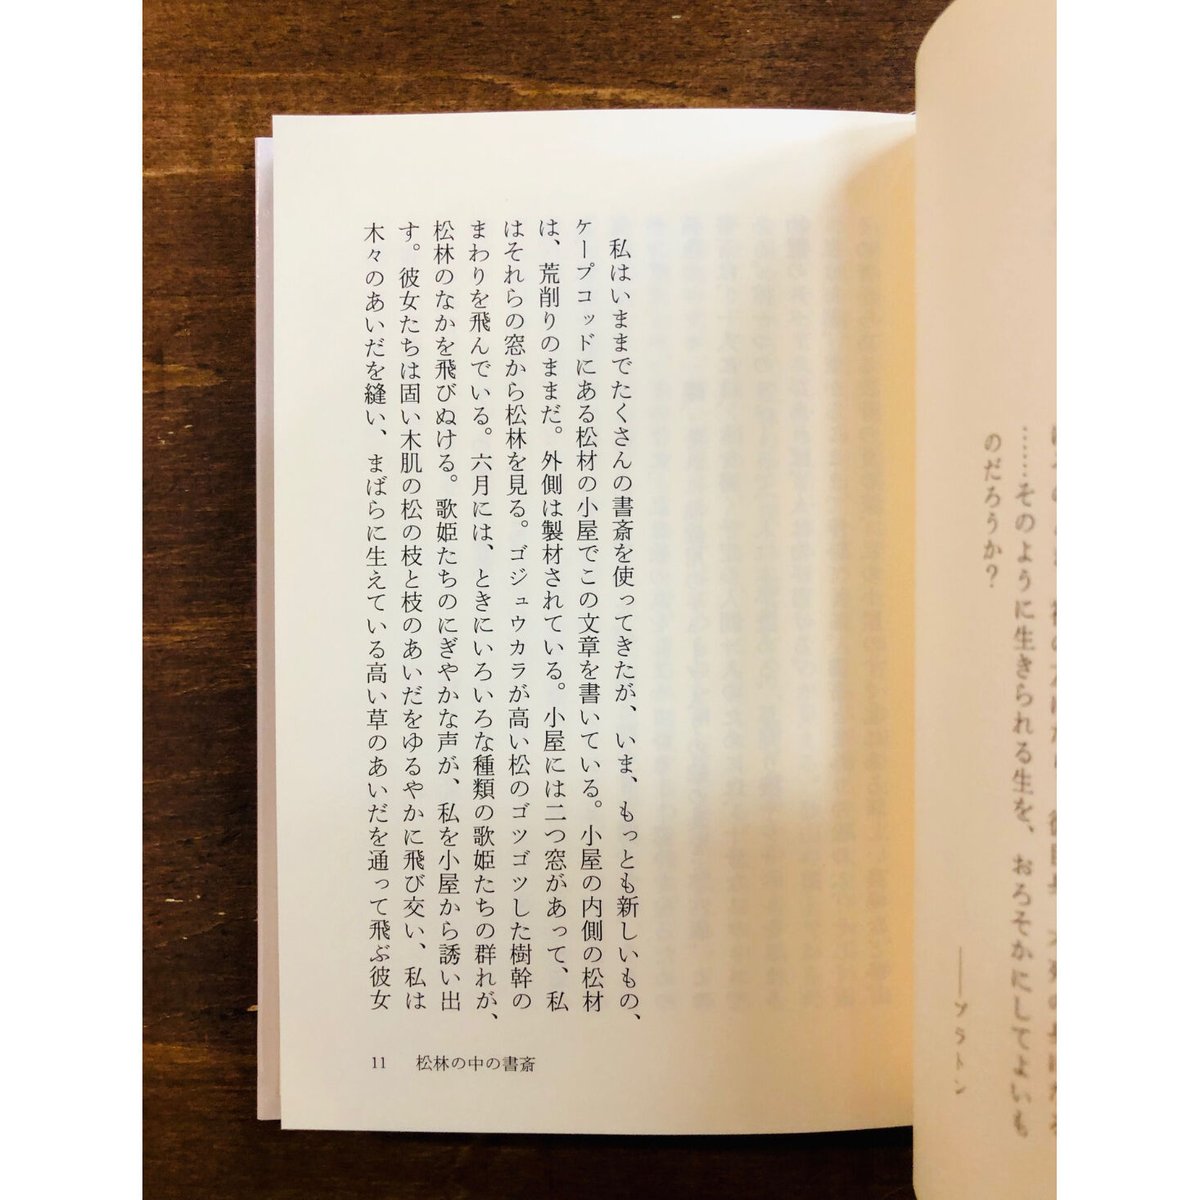 ……そのように生きられる生を、おろそかにしてよいも
のだろうか？
――プラトン
私はいままでたくさんの書斎を使ってきたが、いま、もっとも新しいもの、
ケープコッドにある松材の小屋でこの文章を書いている。小屋の内側の松材
は、荒削りのままだ。外側は製材されている。小屋には二つ窓があって、私
はそれらの窓から松林を見る。ゴジュウカラが高い松のゴツゴツした樹幹の
まわりを飛んでいる。六月には、ときにいろいろな種類の歌姫たちの群れが、
松林のなかを飛びぬける。歌姫たちのにぎやかな声が、私を小屋から誘い出
す。彼女たちは固い木肌の松の枝と枝のあいだをゆるやかに飛び交い、私は
木々のあいだを縫い、まばらに生えている高い草のあいだを通って飛ぶ彼女
11 松林の中の書斎